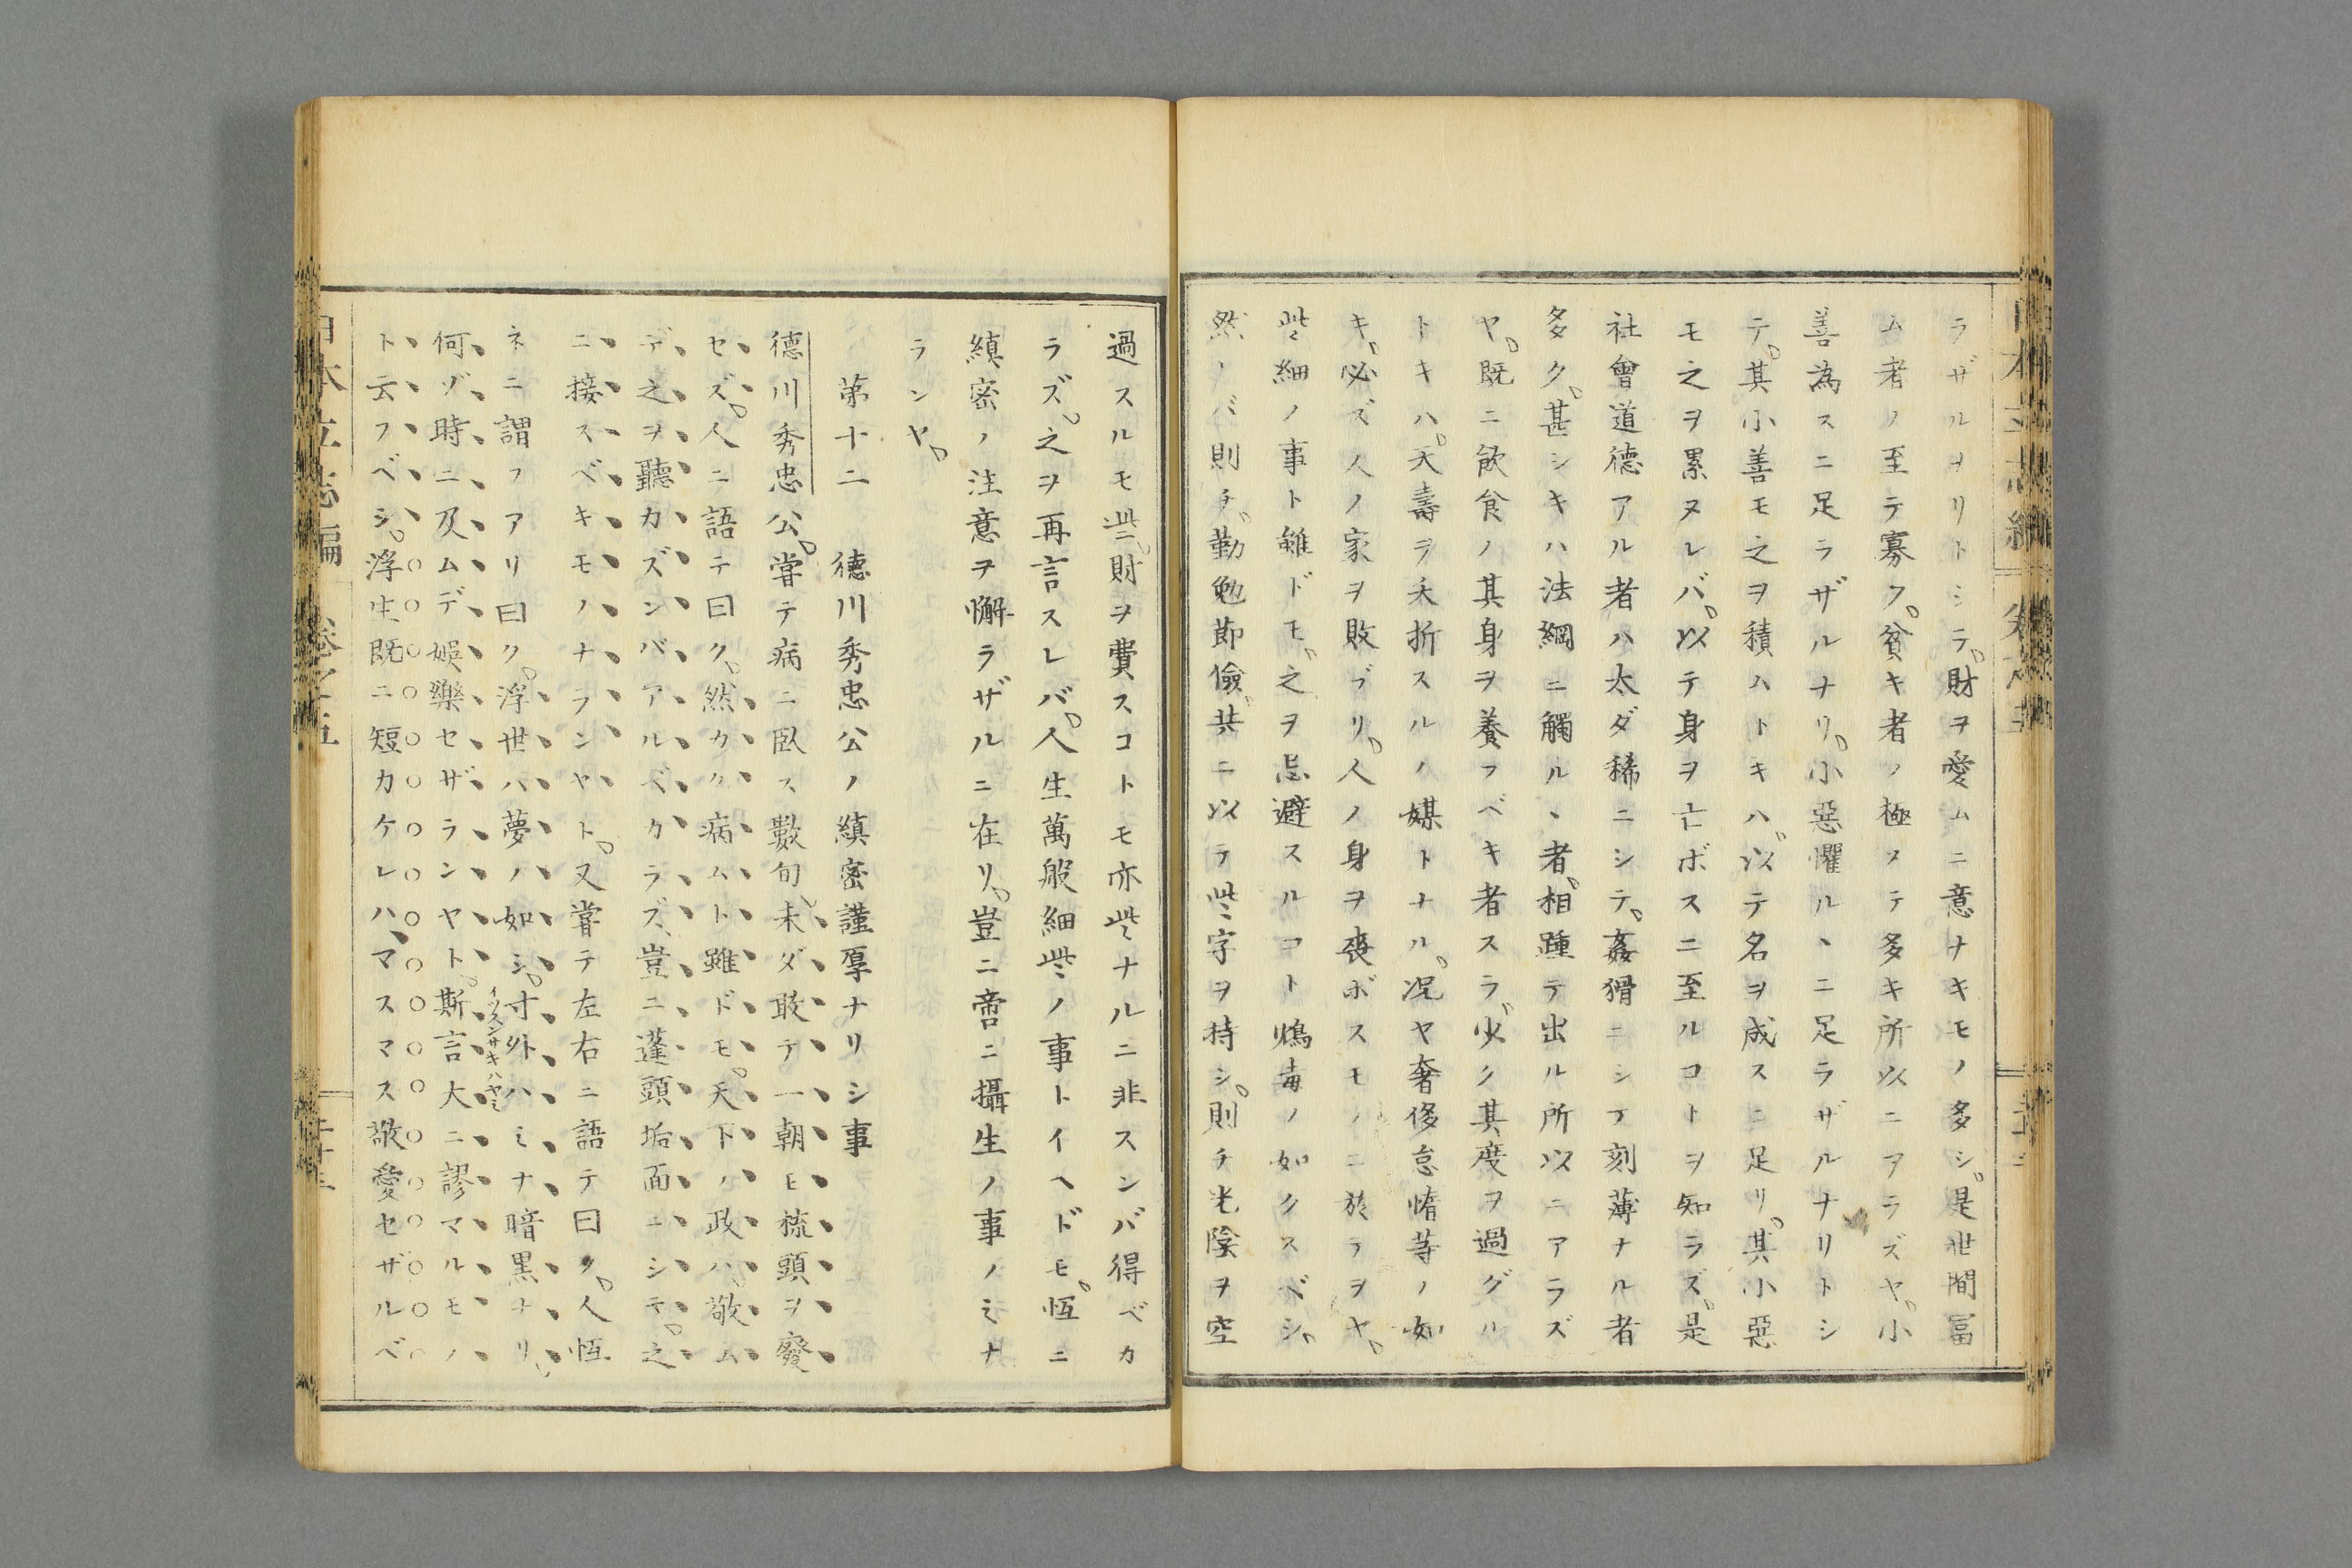 ラザルヲリトシラ。財ヲ愛ムニ意ナキモノ多シ。是世間冨
ム者ノ至テ寡フ。貧キ者ノ極メテ多キ所以ニアラズヤ。小
善為スニ足ラザルナリ。小惡懼ルヽニ足ラザルナリトシ
テ。其小善モ之ヲ積ハトキハ。以テ名ヲ成スニ足リ。其小惡
モ之ヲ累ヌレバ。以テ身ヲ亡ボスニ至ルコトヲ知ラズ。是
社會道德アル者ハ太ダ稀ニシテ。姦猾ニシテ刻薄ナル者
多ク。甚シキハ法綱ニ觸ルヽ者。相踵テ出ル所以ニアラズ
ヤ。既ニ飮食ノ其身ヲ養フベキ者スラ。少ク其度ヲ過グル
トキハ。夭壽ヲ夭折スルノ媒トナル。況ヤ奢侈怠惰等ノ如
キ。必ズ人ノ家ヲ敗ブリ。人ノ身ヲ喪ボスモノニ於テヲヤ。
些細ノ事ト雖ドモ。之ヲ忌避スルコト鴆毒ノ如クスベシ。
然ノバ則チ。勤勉節儉。共ニ以テ些字ヲ持シ。則チ光陰ヲ空
過スルモ些。財ヲ費スコトモ亦些ナルニ非スンバ得ベカ
ラズ。之ヲ再言スレバ。人生萬般細些ノ事トイヘドモ。恆ニ
縝密ノ注意ヲ懈ラザルニ在リ。豈ニ啻ニ攝生ノ事ノミナ
ランヤ。
第十二 德川秀忠公ノ縝密謹厚ナリシ事
德川秀忠公。嘗テ病ニ臥ス數旬。未ダ敢テ一朝モ梳頭ヲ廢
セズ。人ニ語テ曰ク。然カク病ムト雖ドモ。天下ノ政ハ。敬ム
デ之ヲ聽カズンバアルベカラズ。豈ニ蓬頭垢面ニシテ。之
ニ接スベキモノナランヤト。又嘗テ左右ニ語テ曰ク。人恆
ネニ謂フアリ曰ク。浮世ハ夢ノ如シ。寸外ハミナ暗黒ナリ。
イッスンサキハヤミ
何ゾ時ニ及ムデ娯樂セザランヤト。斯言大ニ謬マルモノ
ト云フベシ。浮生既ニ短カケレハ、マスマス敬愛セザルベ
日本立志編 卷之五